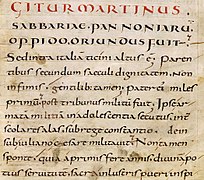 GITUR MARTINUS
SABBARIAE · PANNONIARU
OPPIDO · ORIUNDUS FUIT
Sed intra italiā ticini altus ē Paren
tibus secundum saeculi dignitatem non
infimis · gentilib; tamen · Pater ei miles
primū · post tribunus militū fuit · Ipse ar
matā militiā in adolescentia secutus int
scolares alas sub rege constantio · dein
sub iuliano caesare militavit · Non tamen
sponte quia a primis fere annis divinā po
tius servitutē sacra inlustris pueri inspi